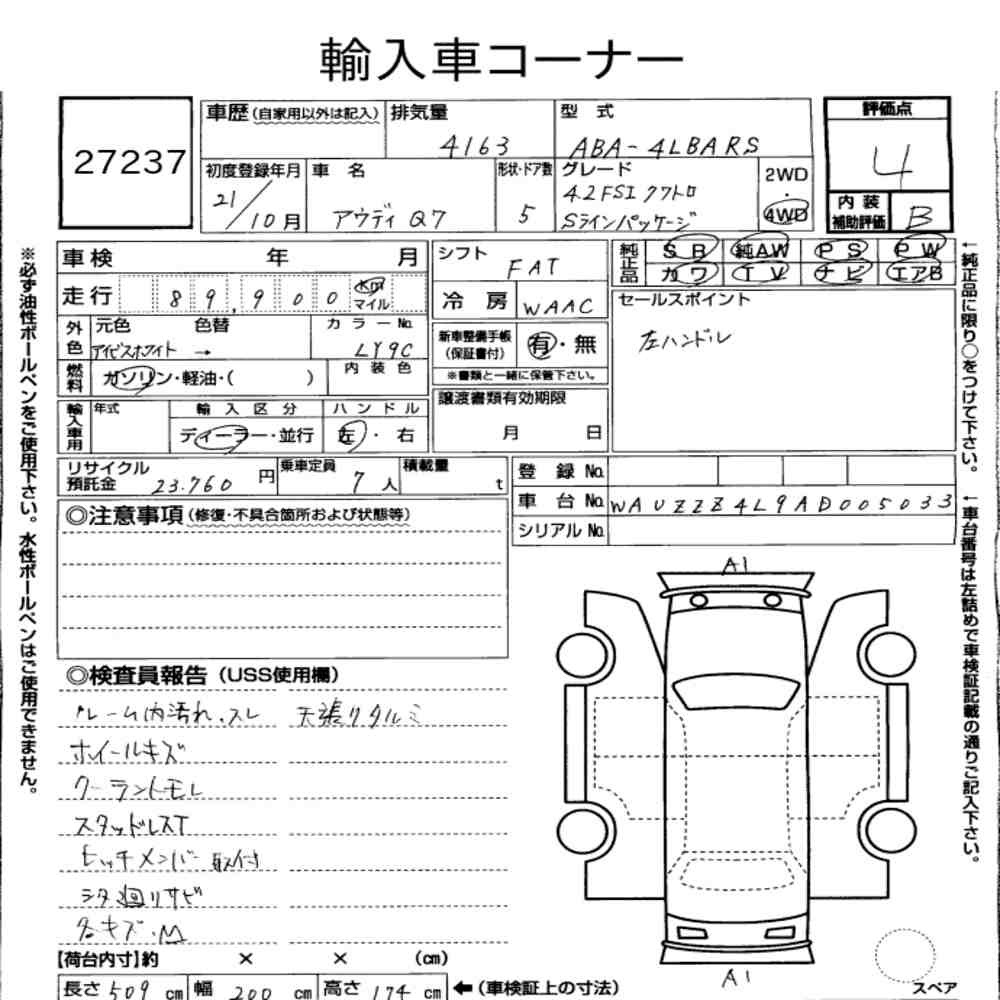 輸入車コーナー
27237
車歴(自家用以外は記入) 排気量 4163 型式 ABA-4LBARS
初度登録年月 21/10月 車名 アウディ Q7 形状・ドア数 5 グレード 4.2FSI クワトロ Sラインパッケージ 2WD・4WD
評価点 4
内装補助評価 B
車検 年 月
走行 89,900 km マイル
外色 元色 アイビスホワイト 色替 → カラーNo. LY9C
燃料 ガソリン・軽油・( ) 内装色
輸入車用 年式 輸入区分 ディーラー・並行 ハンドル 左・右
シフト FAT
冷房 WAAC
新車整備手帳(保証書付) 有・無
※書類と一緒に保管下さい。
譲渡書類有効期限
月 日
純正品 SR 純AW PS PW
カワ TV ナビ エアB
セールスポイント
左ハンドル
リサイクル預託金 23.760円 乗車定員 7人 積載量 t
登録No.
車台No. WAUZZZ4L9AD005033
シリアルNo.
◎注意事項(修復・不具合箇所および状態等)
◎検査員報告(USS使用欄)
ルーム内汚れ、スレ 天張りタルミ
ホイールキズ
クーラントモレ
スタッドレスT
ヒッチメンバー取付
シタ廻りサビ
各キズ・M
A1
A1
スペア
【荷台内寸】約 × × (cm)
長さ 509 cm 幅 200 cm 高さ 174 cm ←(車検証上の寸法)
※必ず油性ボールペンをご使用下さい。水性ボールペンはご使用できません。
←純正品に限り○をつけて下さい。
←車台番号は左詰めで車検証記載の通りご記入下さい。